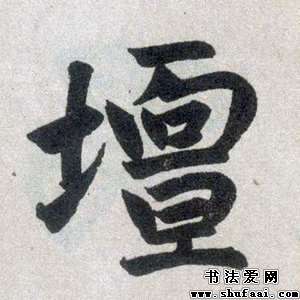 壇
书法爱网
www.shufaai.com